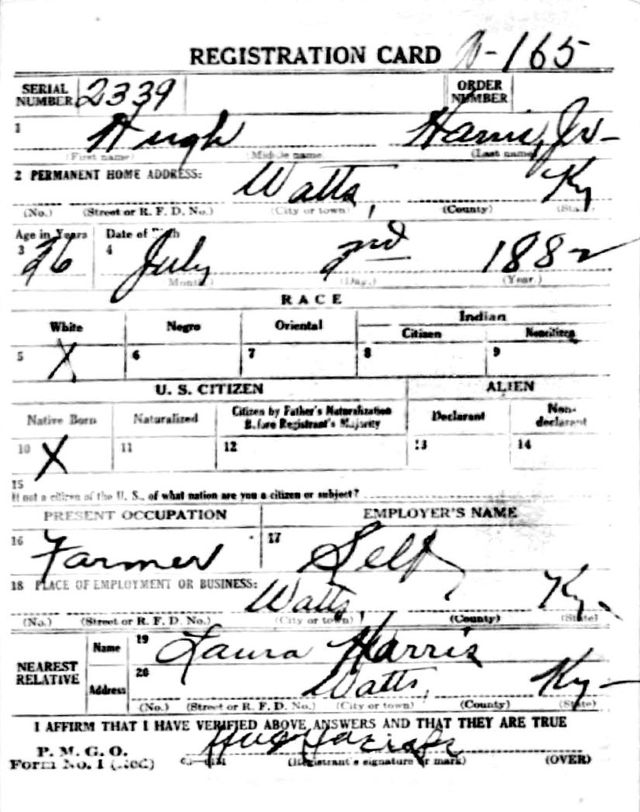 REGISTRATION CARD -165
SERIAL NUMBER 2339 ORDER NUMBER
1 Hugh Harris, Jr-
(First name) Middle name (Last name)
2 PERMANENT HOME ADDRESS: Watts, Ky
(No.) (Street or R. F. D. No.) (City or town) (County) (State)
Age in Years Date of Birth
3 36 4 July 2nd 1882
(Month.) (Day.) (Year.)
RACE
White Negro Oriental Indian
Citizen Noncitizen
5 X 6 7 8 9
U. S. CITIZEN ALIEN
Native Born Naturalized Citizen by Father's Naturalization Before Registrant's Majority Declarant Non-declarant
10 X 11 12 13 14
15
If not a citizen of the U. S., of what nation are you a citizen or subject?
PRESENT OCCUPATION EMPLOYER'S NAME
16 Farmer 17 Self
18 PLACE OF EMPLOYMENT OR BUSINESS: Watts, Ky.
(No.) (Street or R. F. D. No.) (City or town) (County) (State)
NEAREST RELATIVE
Name 19 Laura Harris
Address 20 Watts, Ky-
(No.) (Street or R. F. D. No.) (City or town) (County) (State)
I AFFIRM THAT I HAVE VERIFIED ABOVE ANSWERS AND THAT THEY ARE TRUE
P. M. G. O.
Form No. 1 (Red) (Registrant's signature or mark) (OVER)